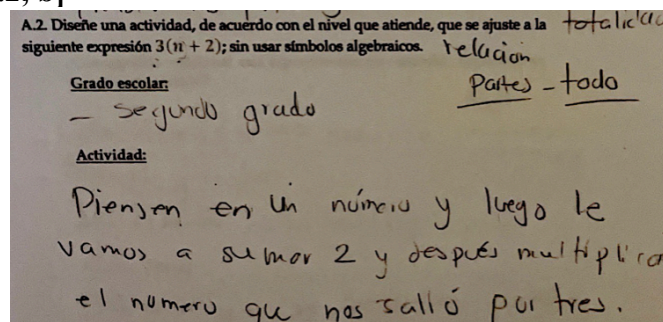 A.2. Diseñe una actividad, de acuerdo con el nivel que atiende, que se ajuste a la
siguiente expresión 3(n + 2); sin usar símbolos algebraicos.
relación
Partes - todo
Grado escolar:
- Segundo grado
Actividad:
Piensen en un número y luego le
vamos a sumar 2 y después multiplica
el numero que nos salió por tres.